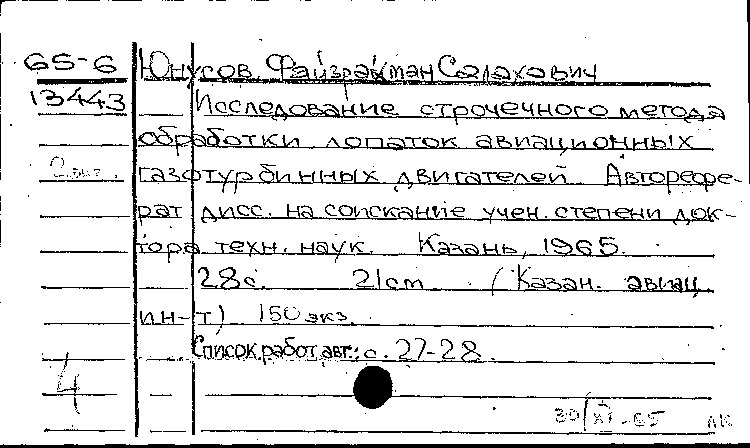 65-6 Юнусов Файзрахман Салахович
13443 Исследование строчечного метода
обработки лопаток авиационных
газотурбинных двигателей Авторефе-
рат дисс. на соискание учен. степени док-
тора техн. наук. Казань, 1965.
28с. 21cm (Казан. авиац.
ин-т) 150 экз.
Список работ авт.: с. 27-28.
4
30/XI-65